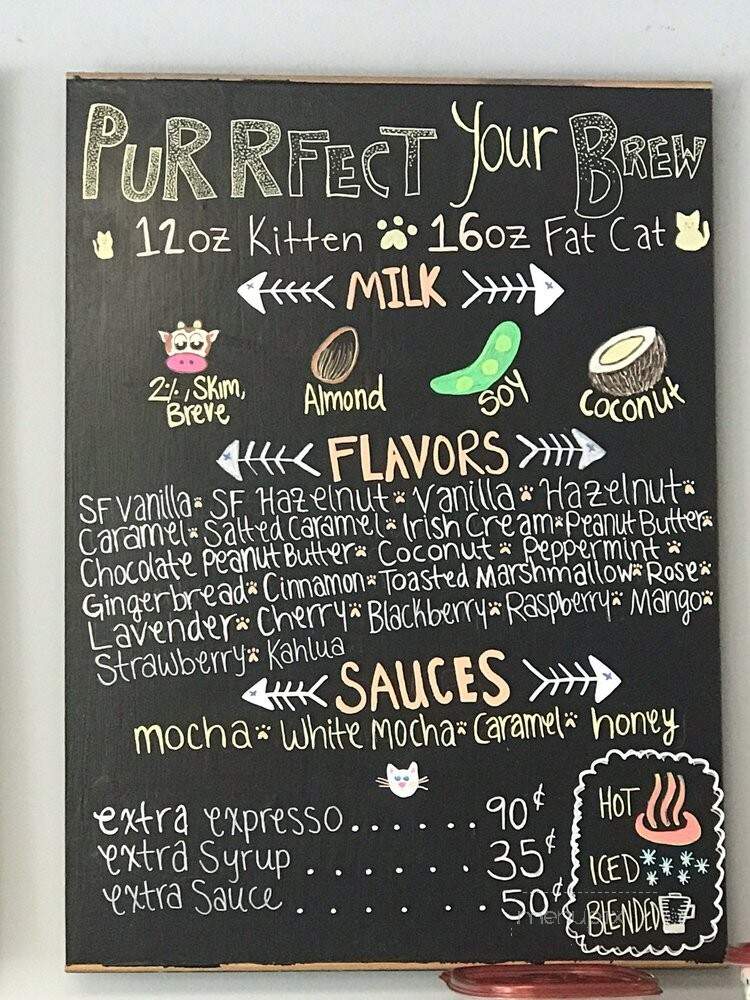 PURRFECT Your BREW
12oz Kitten 16oz Fat Cat
MILK
2%, Skim, Breve
Almond
Soy
Coconut
FLAVORS
SF Vanilla SF Hazelnut Vanilla Hazelnut
Caramel Salted Caramel Irish Cream Peanut Butter
Chocolate Peanut Butter Coconut Peppermint
Gingerbread Cinnamon Toasted Marshmallow Rose
Lavender Cherry Blackberry Raspberry Mango
Strawberry Kahlua
SAUCES
mocha White Mocha Caramel honey
extra expresso...... 90¢
extra Syrup ...... 35¢
extra Sauce ...... 50¢
HOT
ICED
BLENDED